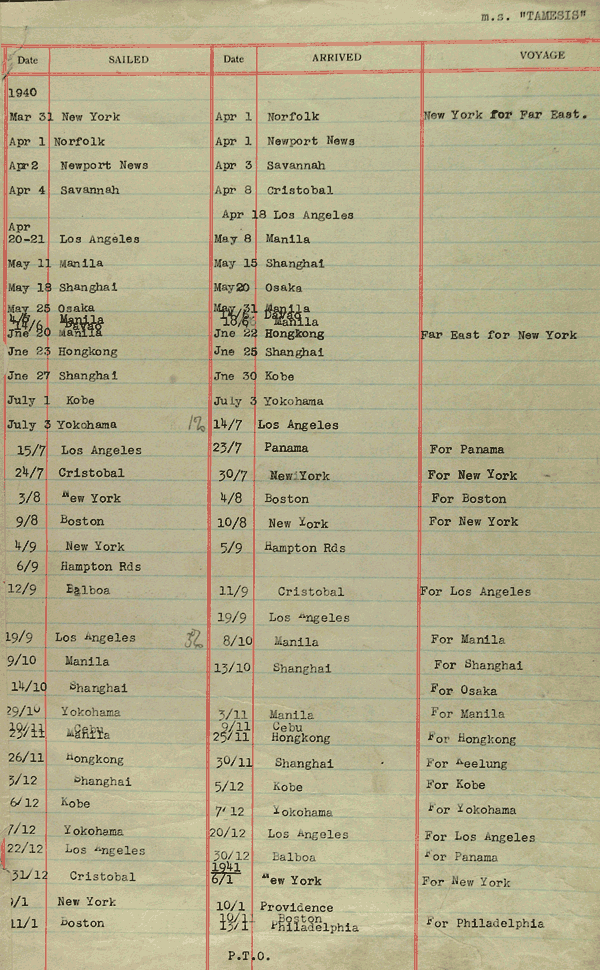 m.s. "TAMESIS"
Date SAILED Date ARRIVED VOYAGE
1940
Mar 31 New York Apr 1 Norfolk New York for Far East.
Apr 1 Norfolk Apr 1 Newport News
Apr 2 Newport News Apr 3 Savannah
Apr 4 Savannah Apr 8 Cristobal
Apr 18 Los Angeles
Apr
20-21 Los Angeles May 8 Manila
May 11 Manila May 15 Shanghai
May 18 Shanghai May20 Osaka
May 25 Osaka May 31 Manila
4/6 Manila 14/6 Davao
14/6 Davao 18/6 Manila
Jne 20 Manila Jne 22 Hongkong Far East for New York
Jne 23 Hongkong Jne 25 Shanghai
Jne 27 Shanghai Jne 30 Kobe
July 1 Kobe July 3 Yokohama
July 3 Yokohama 14/7 Los Angeles
15/7 Los Angeles 23/7 Panama For Panama
24/7 Cristobal 30/7 New York For New York
3/8 New York 4/8 Boston For Boston
9/8 Boston 10/8 New York For New York
4/9 New York 5/9 Hampton Rds
6/9 Hampton Rds
12/9 Balboa 11/9 Cristobal For Los Angeles
19/9 Los Angeles
19/9 Los Angeles 8/10 Manila For Manila
9/10 Manila 13/10 Shanghai For Shanghai
14/10 Shanghai For Osaka
29/10 Yokohama 3/11 Manila For Manila
10/11 Cebu 9/11 Cebu
23/11 Manila 25/11 Hongkong For Hongkong
26/11 Hongkong 30/11 Shanghai For Keelung
3/12 Shanghai 5/12 Kobe For Kobe
6/12 Kobe 7/12 Yokohama For Yokohama
7/12 Yokohama 20/12 Los Angeles For Los Angeles
22/12 Los Angeles 30/12 Balboa For Panama
1941
31/12 Cristobal 6/1 New York For New York
/1 New York 10/1 Providence
10/1 Boston
11/1 Boston 13/1 Philadelphia For Philadelphia
P.T.O.